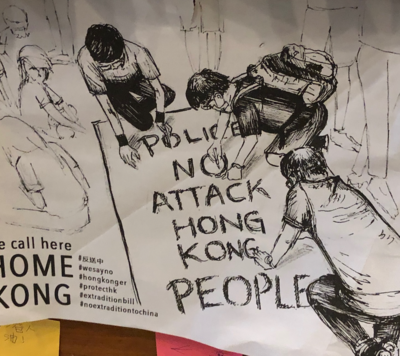 POLICE
NO
ATTACK
HONG
KONG
PEOPLE
e call here
HOME
KONG
#反送中
#wesayno
#hongkonger
#protecthk
#extraditionbill
#noextraditiontochina